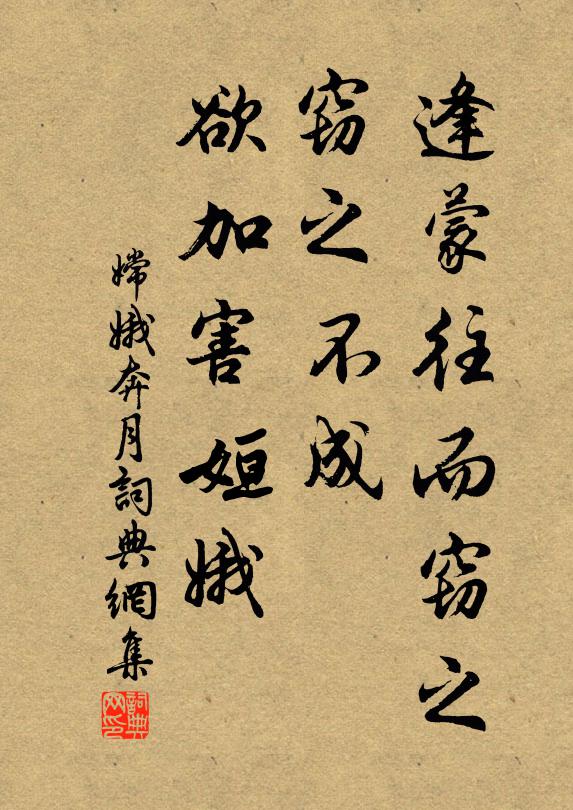 逢蒙往而窃之
窃之不成
欲加害姮娥
嫦娥奔月詞典網集
詞典网印